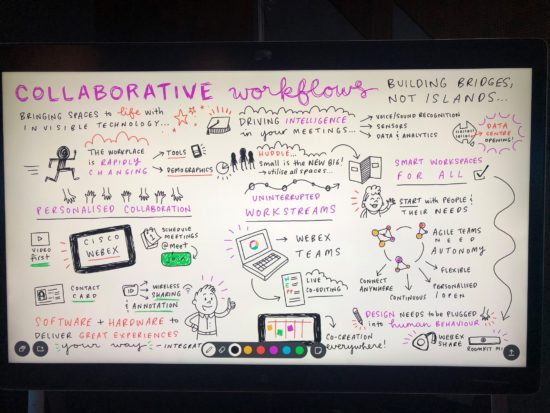 COLLABORATIVE workflows
BUILDING BRIDGES,
NOT ISLANDS...
BRINGING SPACES to life WITH
INVISIBLE TECHNOLOGY...
DRIVING INTELLIGENCE
in your MEETINGS...
VOICE/SOUND RECOGNITION
SENSORS
DATA & ANALYTICS
DATA
CENTRE
OPENING!
THE WORKPLACE
is RAPIDLY
CHANGING
TOOLS
DEMOGRAPHICS
HUDDLE...
SMALL is the NEW BIG!
utilise all spaces...
SMART WORKSPACES
FOR ALL
START with PEOPLE &
THEIR NEEDS
PERSONALISED COLLABORATION
VIDEO
first
CISCO
WEBEX
SCHEDULE
MEETINGS
@meet
CONTACT
CARD
WIRELESS
SHARING
& ANNOTATION
SOFTWARE + HARDWARE to
DELIVER GREAT EXPERIENCES
your way - INTEGRAT
UNINTERRUPTED
WORKSTREAMS
WEBEX
TEAMS
LIVE
CO-EDITING
CO-CREATION
everywhere!
AGILE TEAMS
NEED
AUTONOMY
FLEXIBLE
PERSONALISED
/OPEN
CONTINUOUS
CONNECT
ANYWHERE
DESIGN NEEDS to be PLUGGED
into human BEHAVIOUR
WEBEX
SHARE
ROOMKIT MI